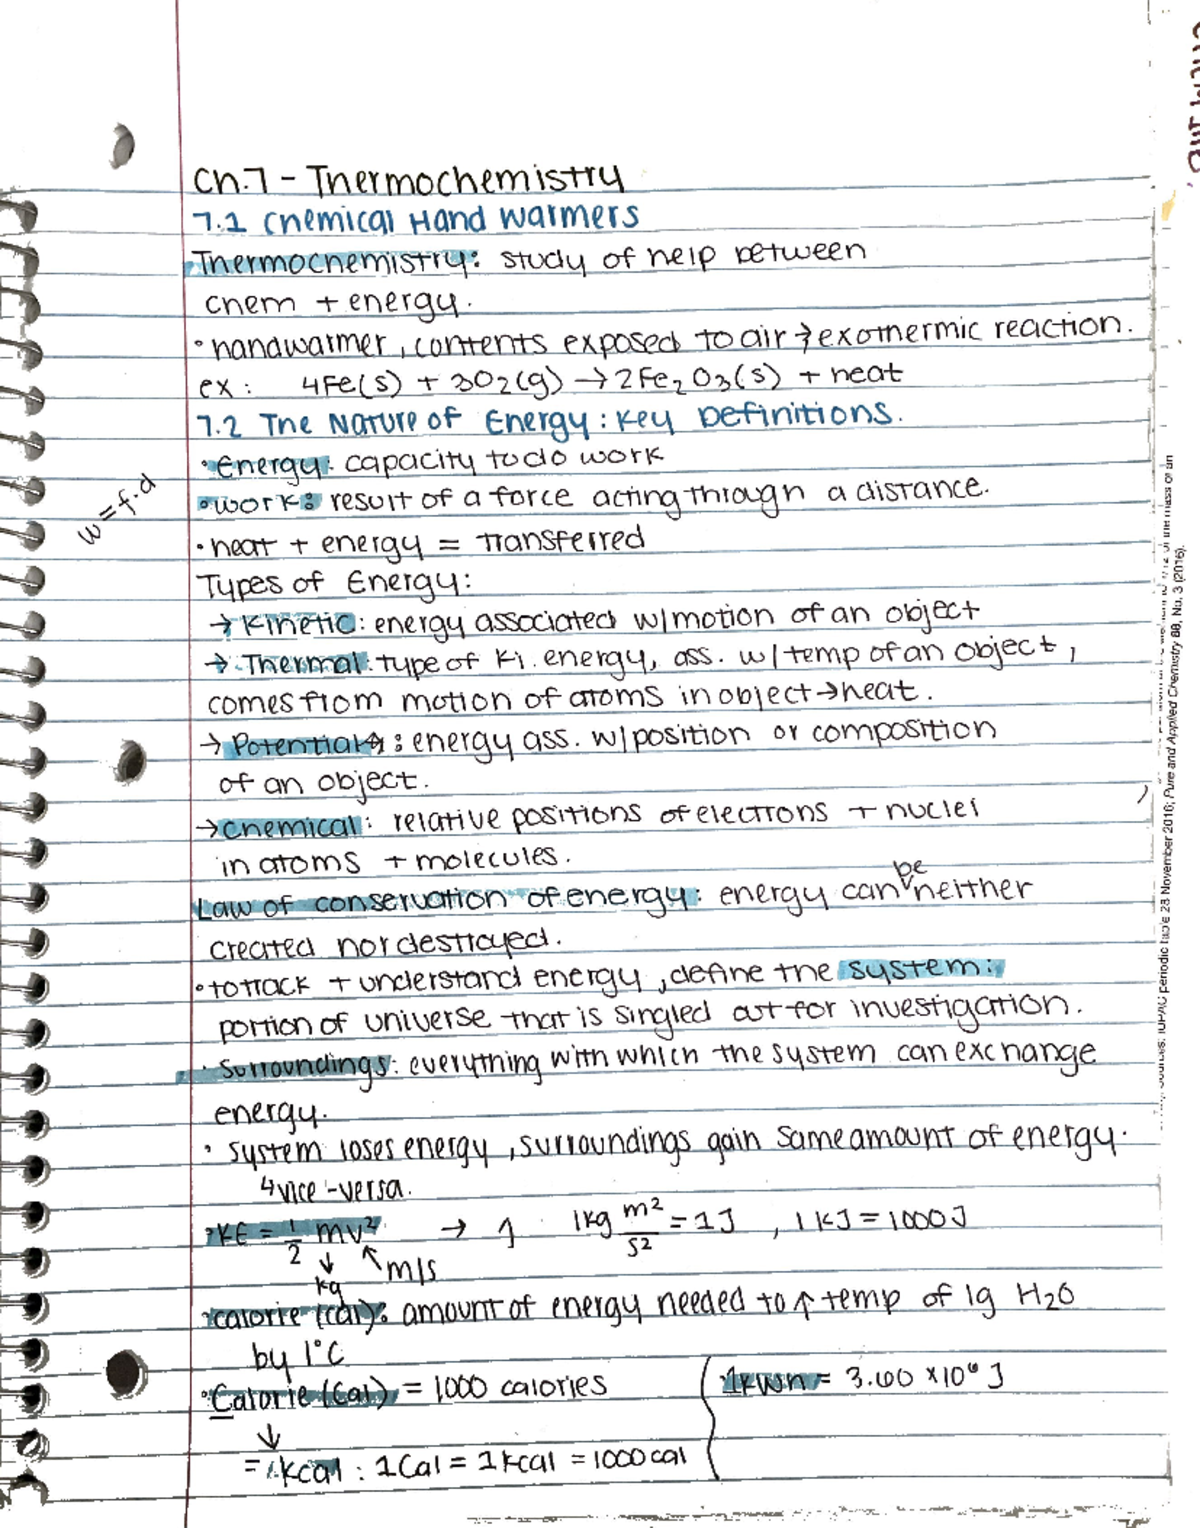 Ch.7 - Thermochemistry
7.1 Chemical Hand Warmers
Thermochemistry: study of help between
chem + energy.
• handwarmer, contents exposed to air → exothermic reaction.
ex: 4Fe(s) + 3O2(g) → 2Fe2O3(s) + heat
7.2 The Nature of Energy: Key Definitions.
• Energy: capacity to do work
w = f·d
• work: result of a force acting through a distance.
• heat + energy = transferred
Types of Energy:
→ Kinetic: energy associated w/motion of an object
→ Thermal: type of Ki. energy, ass. w/ temp of an object,
comes from motion of atoms in object → heat.
→ Potential: energy ass. w/position or composition
of an object.
→ chemical: relative positions of electrons + nuclei
in atoms + molecules.
Law of conservation of energy: energy can be neither
created nor destroyed.
• to track + understand energy, define the system:
portion of universe that is singled out for investigation.
• Surroundings: everything with which the system can exchange
energy.
• system loses energy, surroundings gain same amount of energy.
↳ vice-versa.
• KE = 1/2 mv² → 1 kg m²/s² = 1J, 1 KJ = 1000J
kg m/s
• calorie (cal): amount of energy needed to ↑ temp of 1g H2O
by 1°C
• Calorie (Cal) = 1000 calories
1kWh = 3.60 × 10⁶ J
↓
= kcal : 1Cal = 1kcal = 1000 cal
periodic table 28 November 2016; Pure and Applied Chemistry 88, No. 3 (2016).